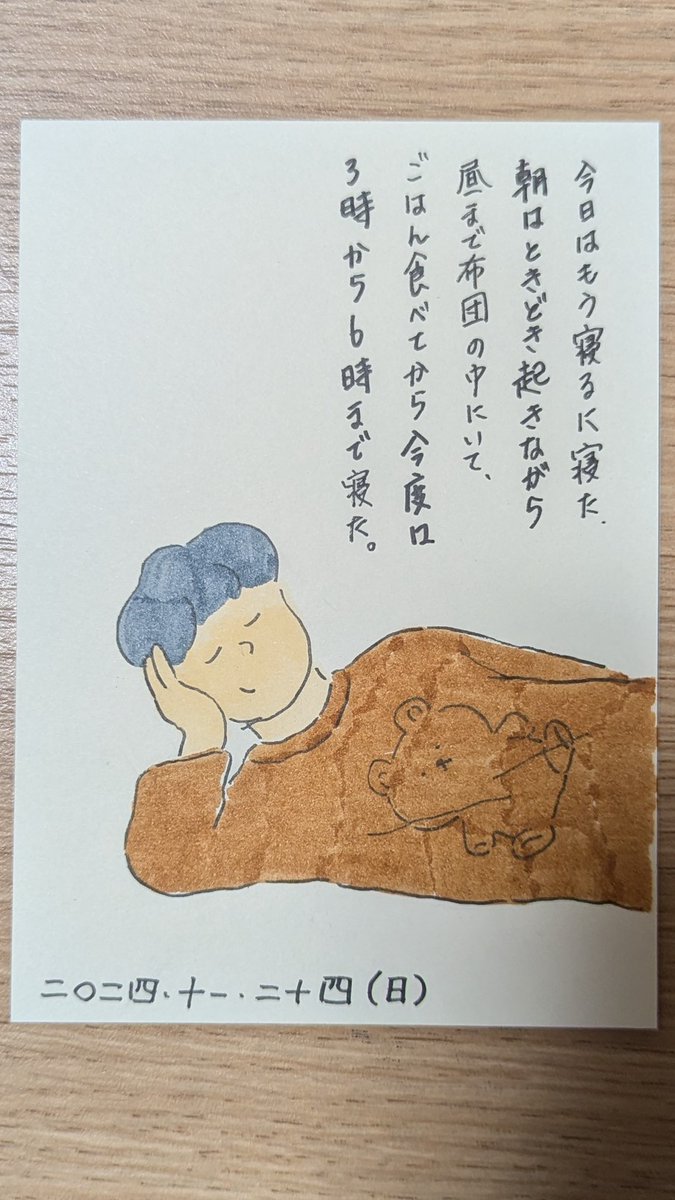 今日はもう寝るに寝た.
朝はときどき起きながら
昼まで布団の中にいて、
ごはん食べてから今度は
3時から6時まで寝た。
二〇二四.十一.二十四(日)